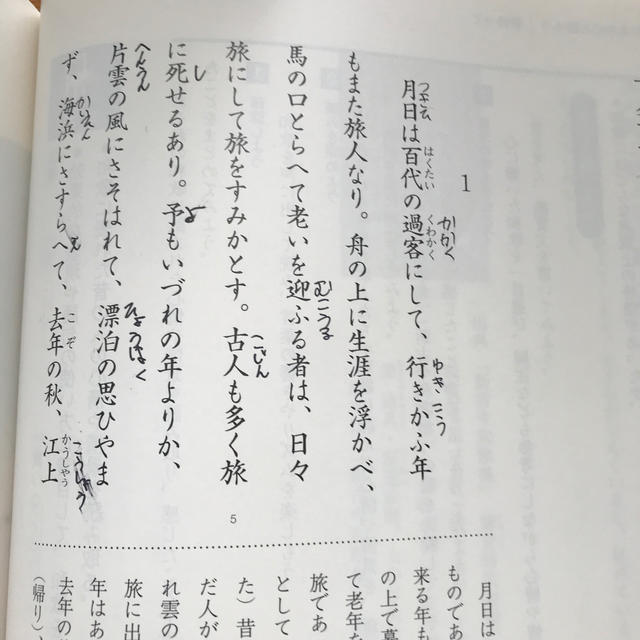 1
月日は百代の過客にして、行きかふ年
はくたい
くわかく
かかく
もまた旅人なり。舟の上に生涯を浮かべ、
馬の口とらへて老いを迎ふる者は、日々
むこうる
旅にして旅をすみかとす。古人も多く旅
こじん
に死せるあり。予もいづれの年よりか、
し
よ
片雲の風にさそはれて、漂泊の思ひやま
へんうん
ひょうはく
ず、海浜にさすらへて、去年の秋、江上
こぞ
かうしやう
5
月日は
ものであ
来る年も
の上で
て老年を
旅であ
として
た）昔
だ人が
れ雲の
旅に出
年はあ
去年の
（帰り）、